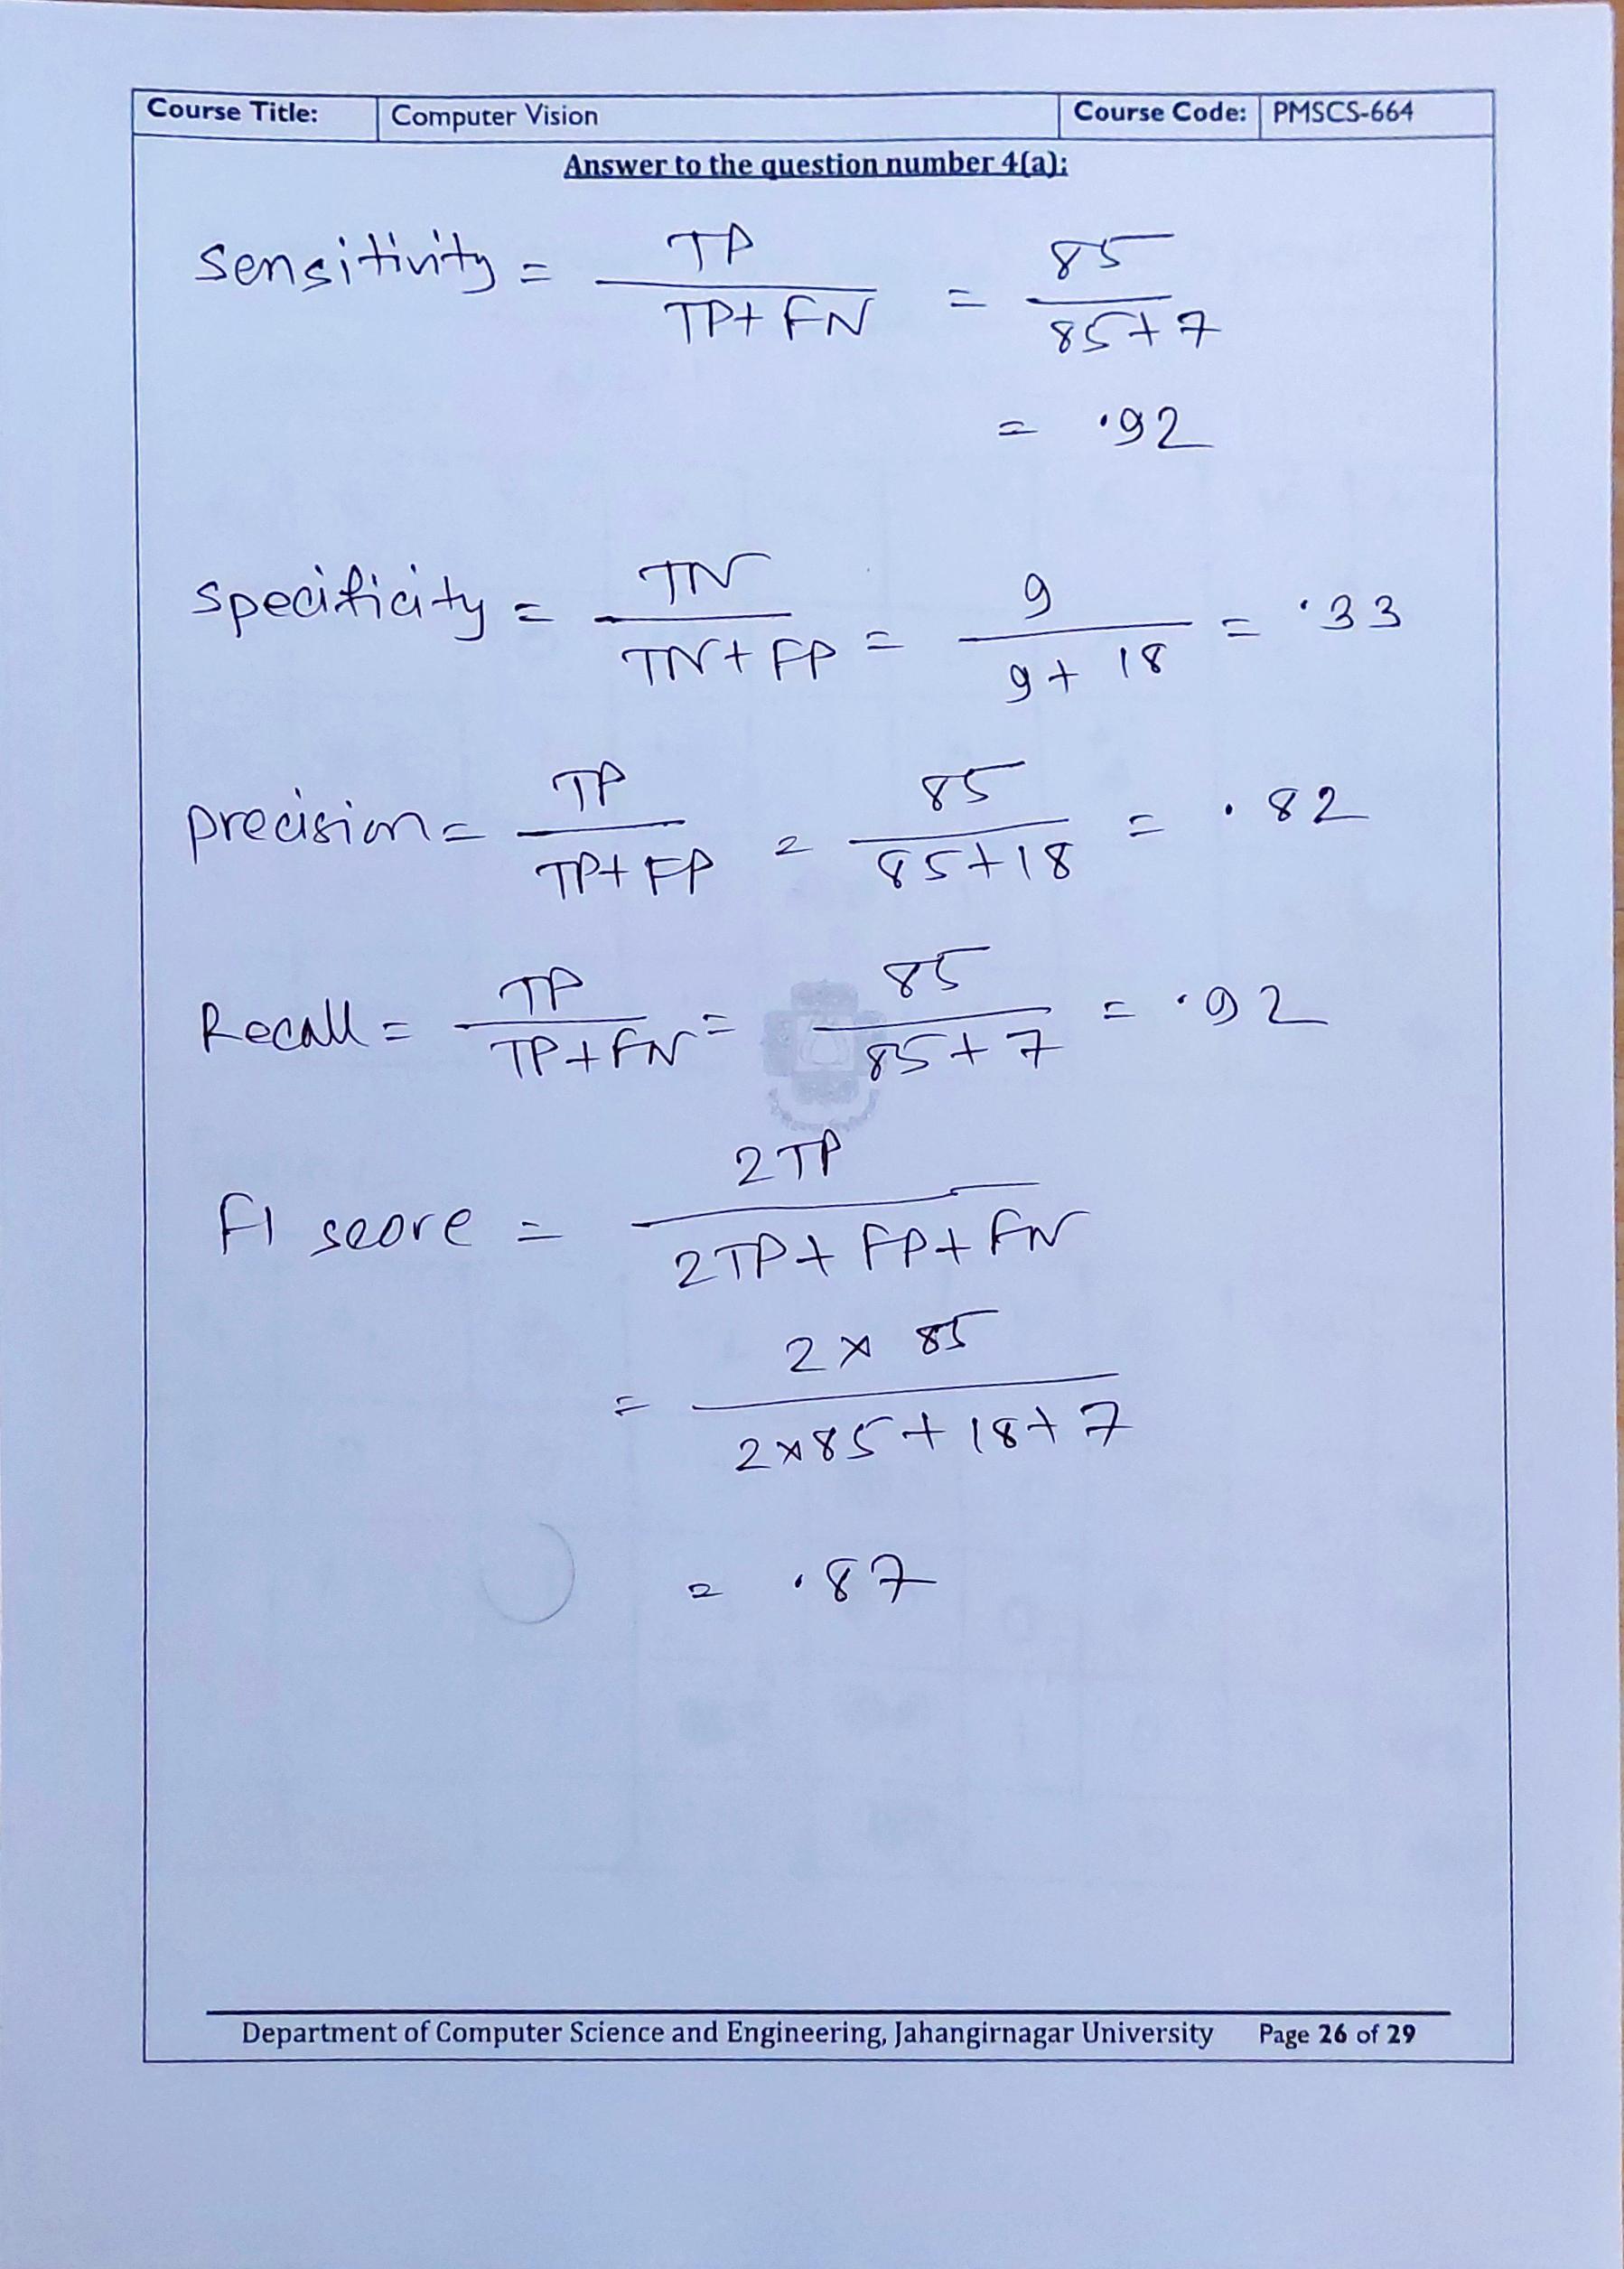 Course Title: Computer Vision Course Code: PMSCS-664
Answer to the question number 4(a):
Sensitivity = TP / TP+FN = 85 / 85+7
= .92
Specificity = TN / TN+FP = 9 / 9+18 = .33
precision = TP / TP+FP = 85 / 85+18 = .82
Recall = TP / TP+FN = 85 / 85+7 = .92
F1 score = 2TP / 2TP+FP+FN
= 2×85 / 2×85+18+7
= .87
Department of Computer Science and Engineering, Jahangirnagar University Page 26 of 29